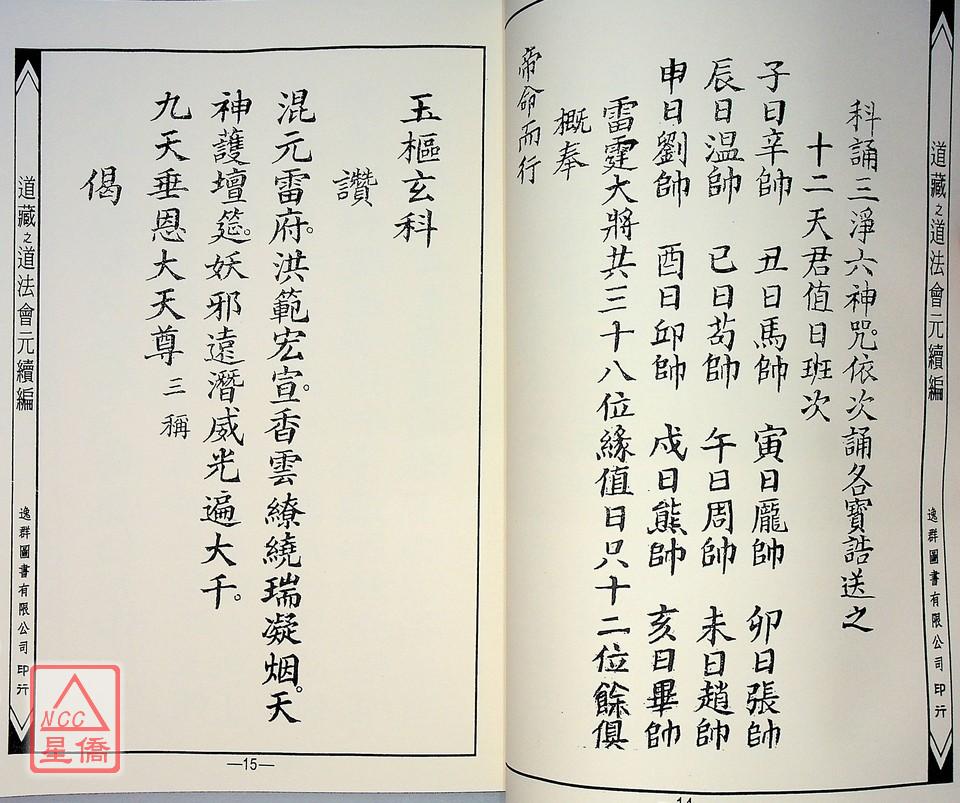 道藏之道法會元續編
逸群圖書有限公司 印行
科誦三淨六神咒。依次誦各寶誥送之
十二天君值日班次
子日辛帥 丑日馬帥 寅日龐帥 卯日張帥
辰日温帥 巳日苟帥 午日周帥 未日趙帥
申日劉帥 酉日邱帥 戌日熊帥 亥日畢帥
雷霆大將共三十八位緣值日只十二位餘俱
概奉
帝命而行
14
玉樞玄科
讚
混元雷府。洪範宏宣。香雲繚繞瑞凝烟。天
神護壇筵。妖邪遠潛威光遍大千。
九天垂恩大天尊 三稱
偈
道藏之道法會元續編
逸群圖書有限公司 印行
—15—
NCC
星僑